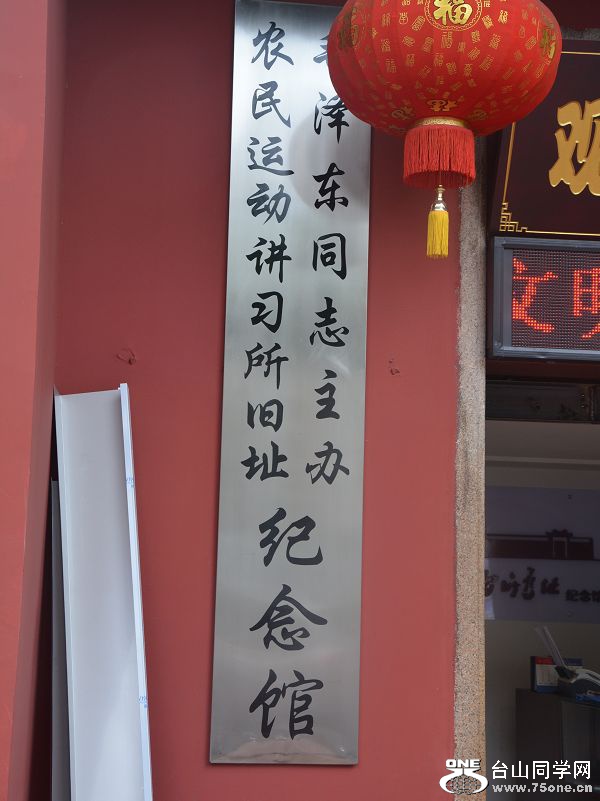 毛泽东同志主办
农民运动讲习所旧址
纪念馆
福
观
文明
旧址纪念馆
ONE
台山同学网
www.75one.cn